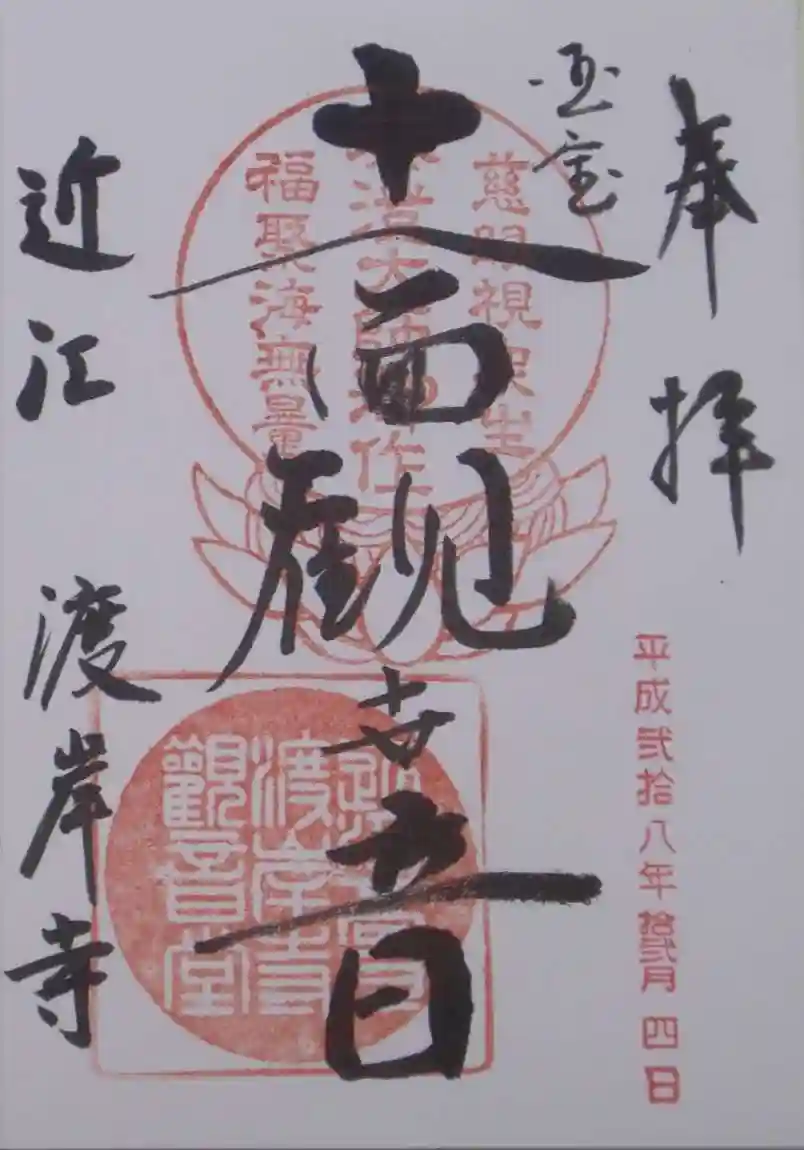 奉拝
国宝
十一面観世音
近江 渡岸寺
慈眼視衆生
泰澄大師御作
福聚海無量
渡岸寺
觀音堂
平成弐拾八年拾弐月四日